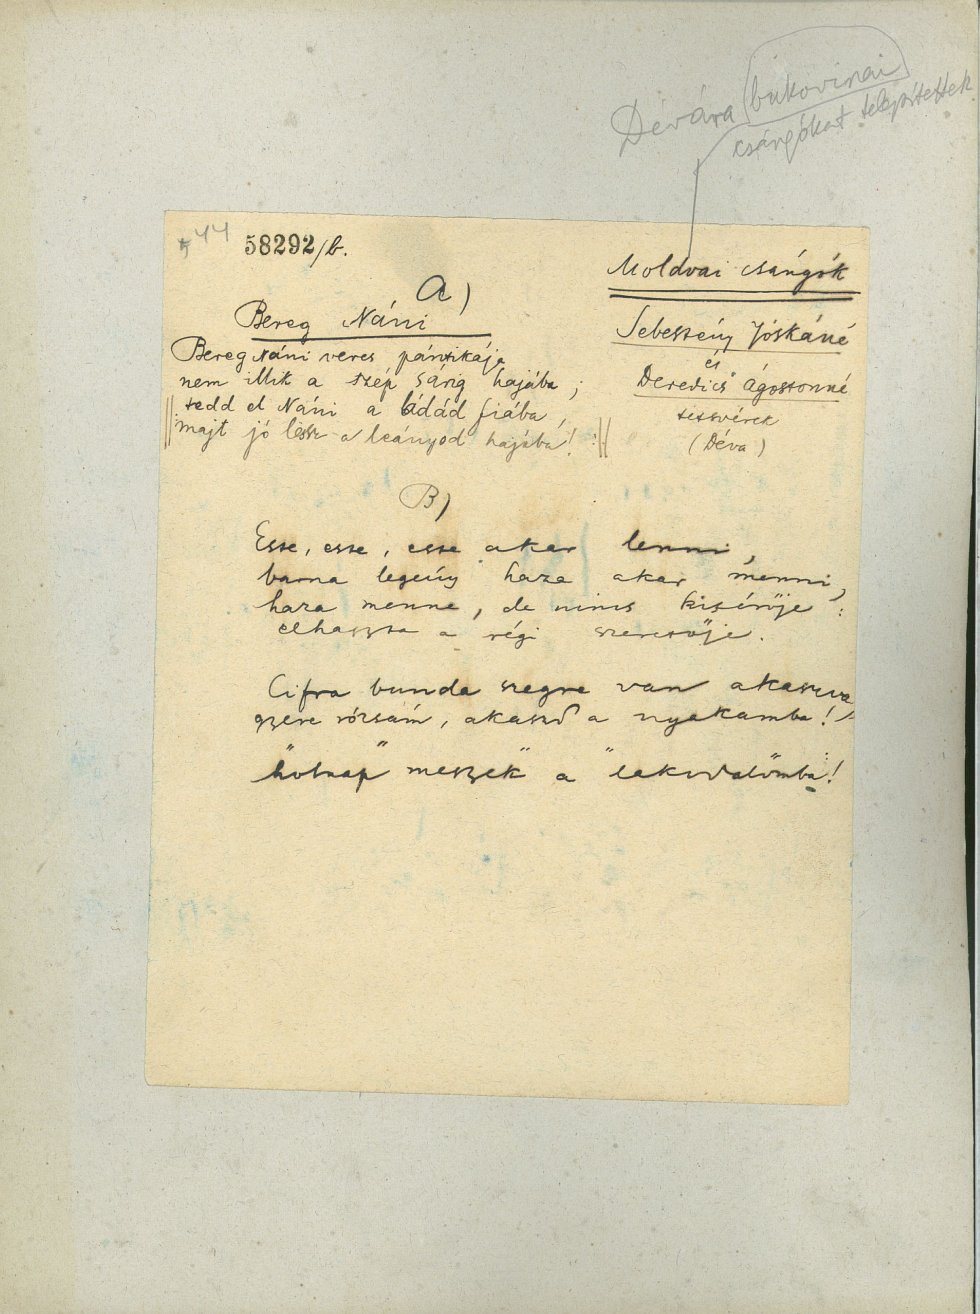 Dévára bukovinai
csángókat telepítettek
544
58292/b.
Moldvai csángók
A)
Bereg Náni
Sebestény Jóskáné
és
Deredics Ágostonné
testvérek
(Déva)
Bereg Náni veres pántikája
nem illik a szép sárig hajába;
tedd el Náni a ládád fiába,
majt jó lessz a leányod hajába!
B)
Esse, esse, esse akar lenni,
barna legény haza akar menni,
haza menne, de nincs kisérője:
elhaszta a régi szeretője.
Cifra bunda szegre van akaszva
gyere rózsám, akaszd a nyakamba!
hőtnap meszek a lakodalomba!